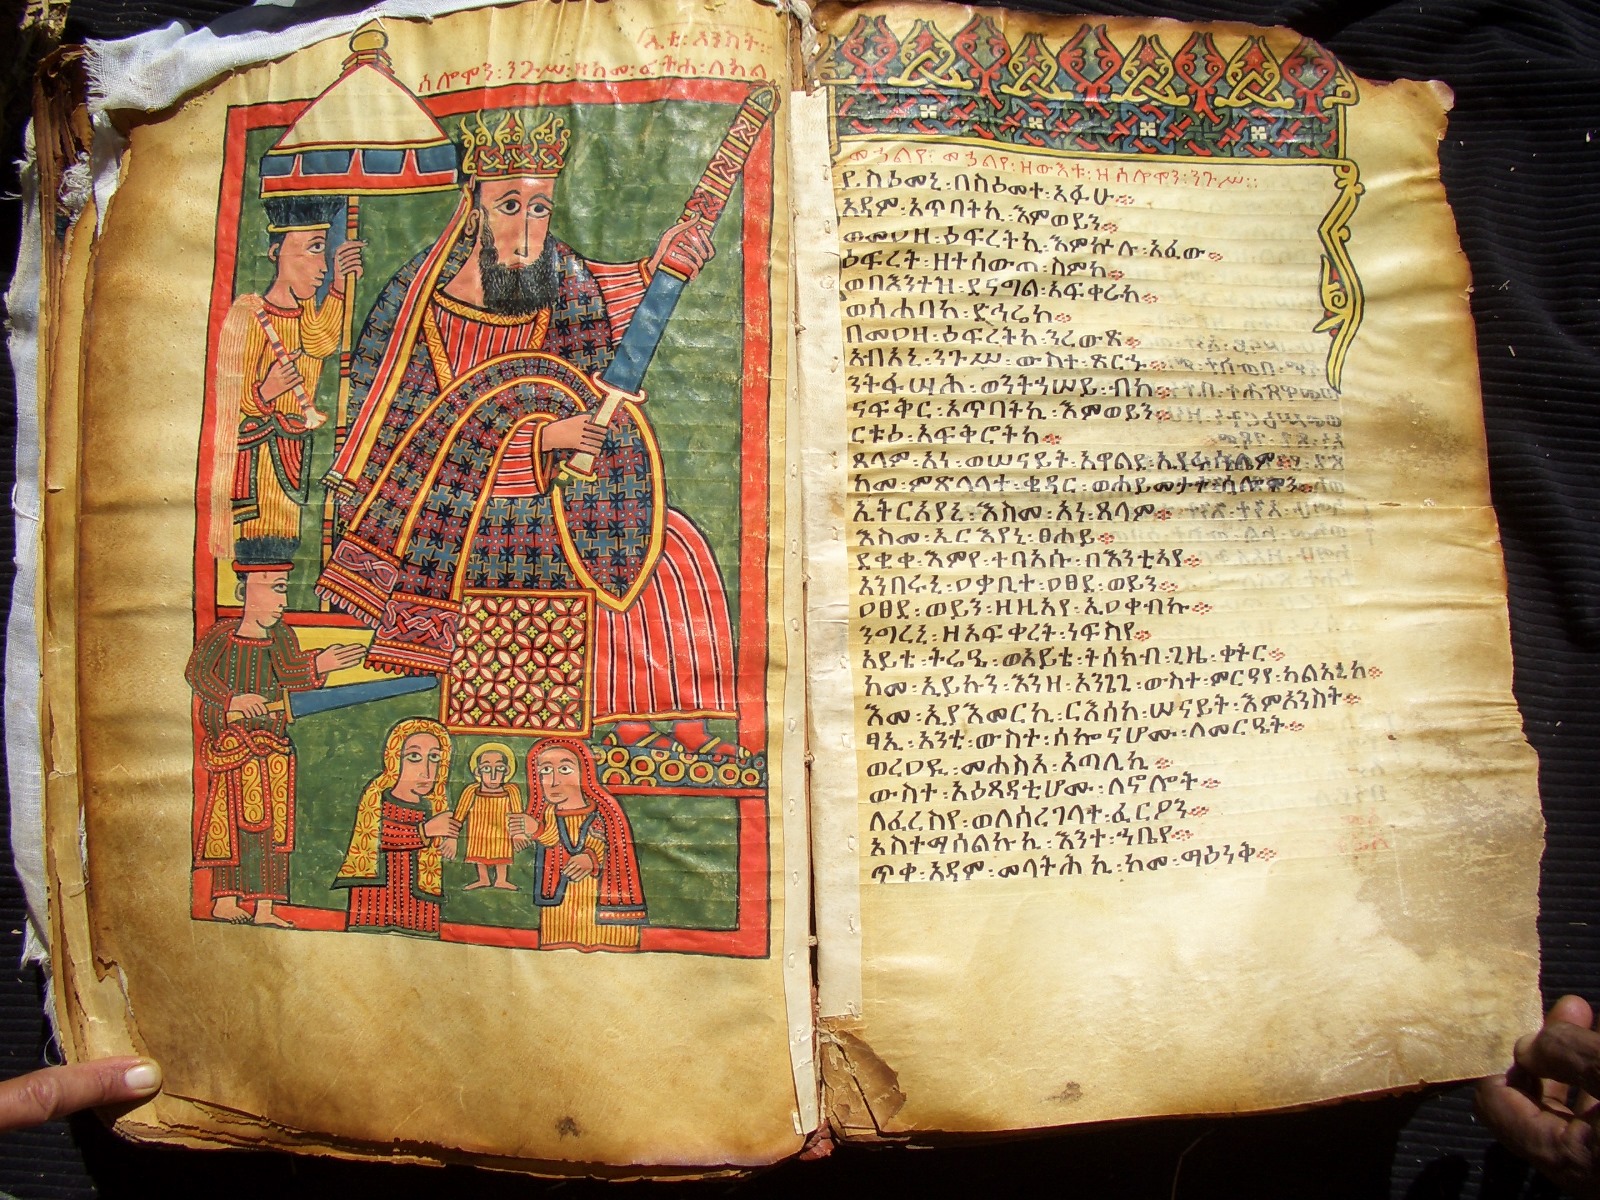 ሰሎሞን፡ንጉሥ፡ዘከመ፡ፈትሐ፡ለክል
ኤቲ፡አንስት።
መኃልየ፡መኃልየ፡ዝውእቱ፡ዘሰሎሞን፡ንጉሥ።
ይስዕመኒ፡በስዕመተ፡አፉሁ
አዳም፡አጥባትኪ፡እምወይን
ወመዐዛ፡ዕፍረትኪ፡እምኵሉ፡አፈው
ዕፍረት፡ዘተሰውጠ፡ስምከ
ወበእንተዝ፡ደናግል፡አፍቀራከ
ወሰሐባከ፡ድኅሬከ
በመዐዛ፡ዕፍረትከ፡ንረውጽ
አብአኒ፡ንጉሥ፡ውስተ፡ጽርሑ
ንትፋሣሕ፡ወንትኃሠይ፡ብከ
ናፍቅር፡አጥባትኪ፡እምወይን
ርቱዕ፡አፍቅሮትከ
ጸላም፡አነ፡ወሠናይት፡አዋልደ፡ኢየሩሳሌም
ከመ፡ምጽላላተ፡ቄዳር፡ወሐይመታት፡ሰሎሞን
ኢትርአያኒ፡እስመ፡አነ፡ጸላም
እስመ፡ኢርእየኒ፡ፀሐይ
ደቂቀ፡እምየ፡ተባአሱ፡በእንቲአየ
አንበሩኒ፡ዐቃቢተ፡ዐፀደ፡ወይን
ዐፀደ፡ወይን፡ዘዚአየ፡ኢዐቀብኩ
ንግረኒ፡ዘአፍቀረት፡ነፍስየ
አይቴ፡ትሬዒ፡ወአይቴ፡ትሰክብ፡ጊዜ፡ቀትር
ከመ፡ኢይኩን፡እንዘ፡አንገጊ፡ውስተ፡ምርዓየ፡ካልአኒከ
እመ፡ኢያእመርኪ፡ርእሰኪ፡ሠናይት፡እምአንስት
ፃኢ፡አንቲ፡ውስተ፡ሰኰናሆሙ፡ለመርዔት
ወረዐዪ፡መሐስአ፡አጣሊኪ
ውስተ፡አዕጻዳቲሆሙ፡ለኖሎት
ለፈረስየ፡ወለሰረገላት፡ፈርዖን
አስተማሰልኩኪ፡እንተ፡ኀቤየ
ጥቀ፡አዳም፡መላትሕኪ፡ከመ፡ማዕነቅ